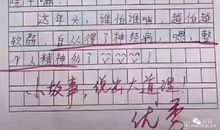 这年头，谁怕谁啊，越怕越
软弱，自从得了神经病，嗯！整
个人精神多了
小故事，说出大道理！
优秀